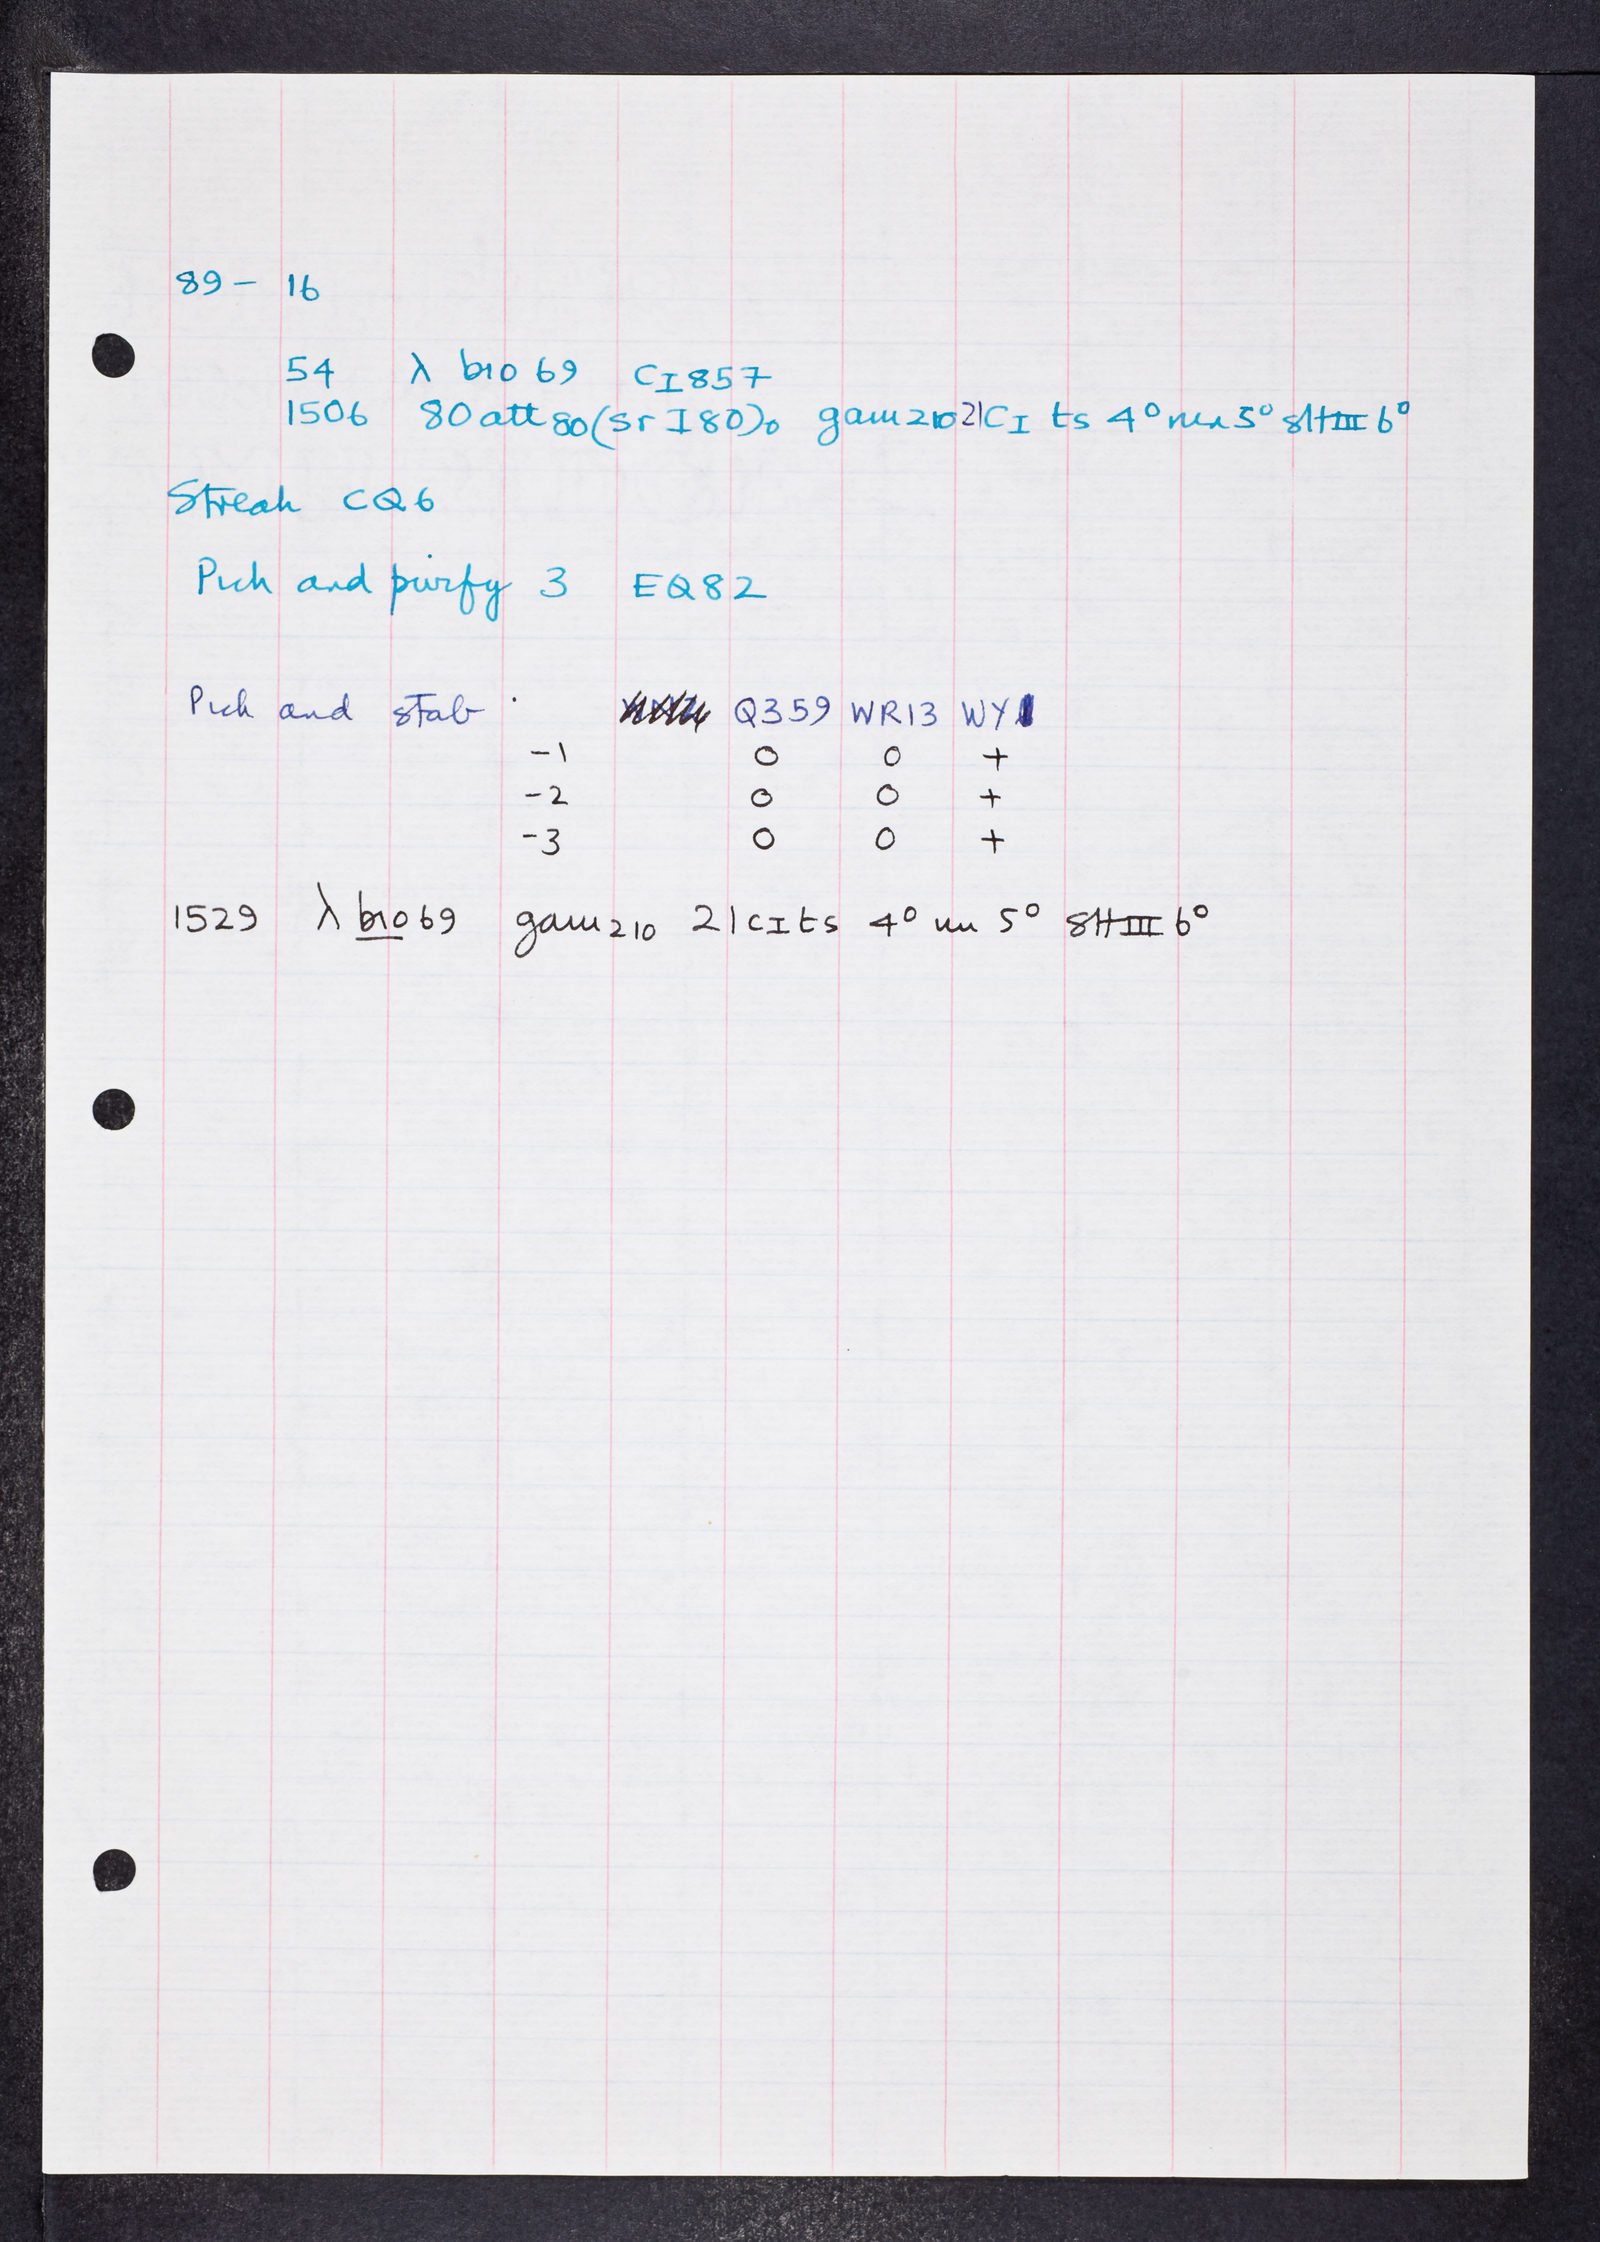 89 - 16
54 λ bio 69 CI857
1506 80att80(SrI80)0 gam210 21CI ts 4° nin 5° sHIII 6°
Streak CQ6
Pick and purify 3 EQ82
Pick and stab Q359 WR13 WY
-1 0 0 +
-2 0 0 +
-3 0 0 +
1529 λ bio69 gam210 21cIts 4° nin 5° sHIII 6°